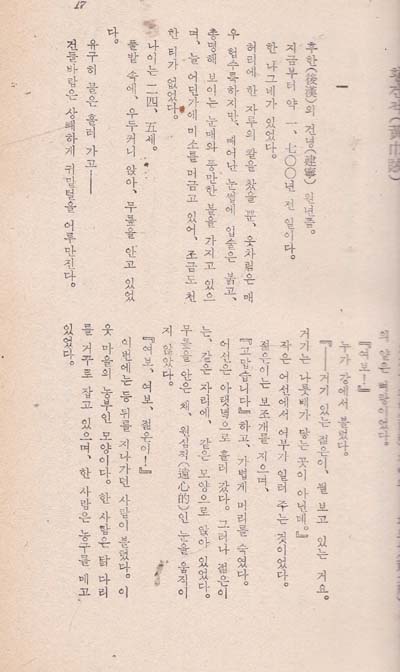 17
후한(後漢)의 건녕(建寧) 원년쯤。
지금부터 약 一、七〇〇년 전 일이다。
한 나그네가 있었다。
허리에 한 자루의 칼을 찼을 뿐、옷차림은 매
우 헙수룩하지만、빼어난 눈썹에 입술은 붉고、
총명해 보이는 눈매와 풍만한 볼을 가지고 있으
며、늘 어딘가에 미소를 머금고 있어、조금도 천
한 티가 없었다。
나이는 二四、五세。
풀밭 속에、우두커니 앉아、무릎을 안고 있었
다。
유구히 물은 흘러 가고——
건들바람은 상쾌하게 귀밑털을 어루만진다。
『여보!』
누가 강에서 불렀다。
『——거기 있는 젊은이、뭘 보고 있는 거요。
거기는 나룻배가 닿는 곳이 아닌데。』
작은 어선에서 어부가 일러 주는 것이었다。
젊은이는 보조개를 지으며、
『고맙습니다』하고、가볍게 머리를 숙였다。
어선은 아랫녘으로 흘러 갔다。그러나 젊은이
는、같은 자리에、같은 모양으로 앉아 있었다。
무릎을 안은 채、원심적(遠心的)인 눈을 움직이
지 않았다。
『여보、여보、젊은이!』
이번에는 등 뒤를 지나가던 사람이 불렀다。이
웃 마을의 농부인 모양이다。한 사람은 닭 다리
를 거꾸로 잡고 있으며、한 사람은 농구를 메고
있었다。